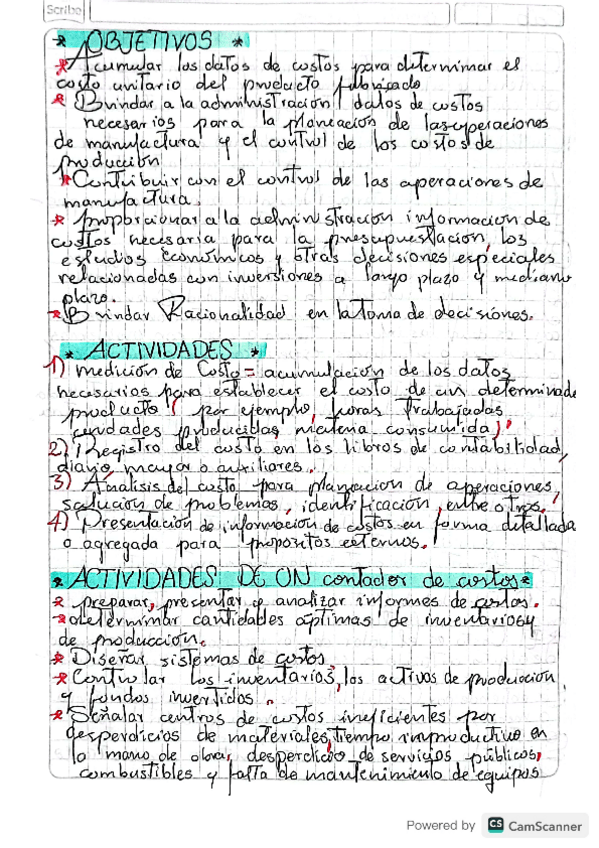 Scribe
* OBJETIVOS *
* Acumular los datos de costos para determinar el
costo unitario del producto fabricado
* Brindar a la administración datos de costos
necesarios para la planeación de las operaciones
de manufactura y el control de los costos de
producción
* Contribuir con el control de las operaciones de
manufactura.
* proporcionar a la administración información de
costos necesaria para la presupuestación, los
estudios económicos y otras decisiones especiales
relacionadas con inversiones a largo plazo y mediano
plazo.
* Brindar Racionalidad en la toma de decisiones.
* ACTIVIDADES *
1) medición de Costo = acumulación de los datos
necesarios para establecer el costo de un determinado
producto ( por ejemplo, horas trabajadas
unidades producidas, materia consumida)
2) Registro del costo en los libros de contabilidad,
diario, mayor o auxiliares.
3) Análisis del costo para planeación de operaciones,
solución de problemas, identificación, entre otros.
4) Presentación de información de costos en forma detallada
o agregada para propositos externos.
* ACTIVIDADES DE UN contador de costos *
* preparar, presentar y analizar informes de costos.
* determinar cantidades optimas de inventarios y
de producción.
* Diseñar sistemas de costos
* Controlar los inventarios, los activos de producción
y fondos invertidos.
* Señalar centros de costos ineficientes por
desperdicios de materiales, tiempo improductivo en
la mano de obra, desperdicio de servicios públicos,
combustibles y falta de mantenimiento de equipos
Powered by CS CamScanner